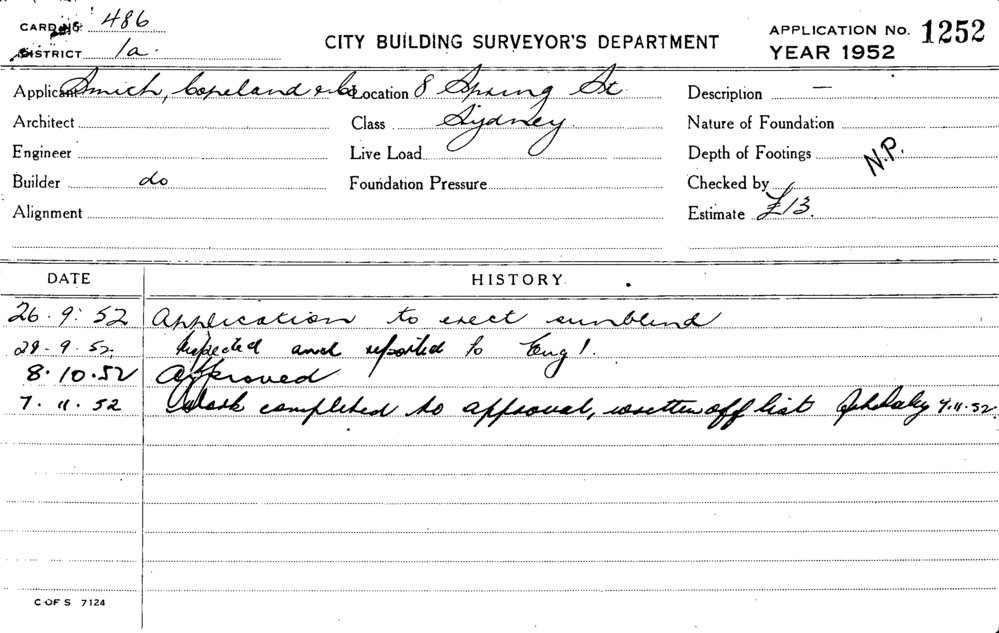 CARD No. 486
DISTRICT 1a.
CITY BUILDING SURVEYOR'S DEPARTMENT
APPLICATION No. 1252
YEAR 1952
Applicant Smith, Copeland & Co Location 8 Spring St Description —
Architect Class Sydney Nature of Foundation
Engineer Live Load Depth of Footings N.P.
Builder do Foundation Pressure Checked by
Alignment Estimate £13.
DATE HISTORY
26.9.52 Application to erect sunblind
29.9.52. Inspected and reported to Eng'.
8.10.52 Approved
7.11.52 Work completed to approval, written off list 7.11.52
C OF S 7124